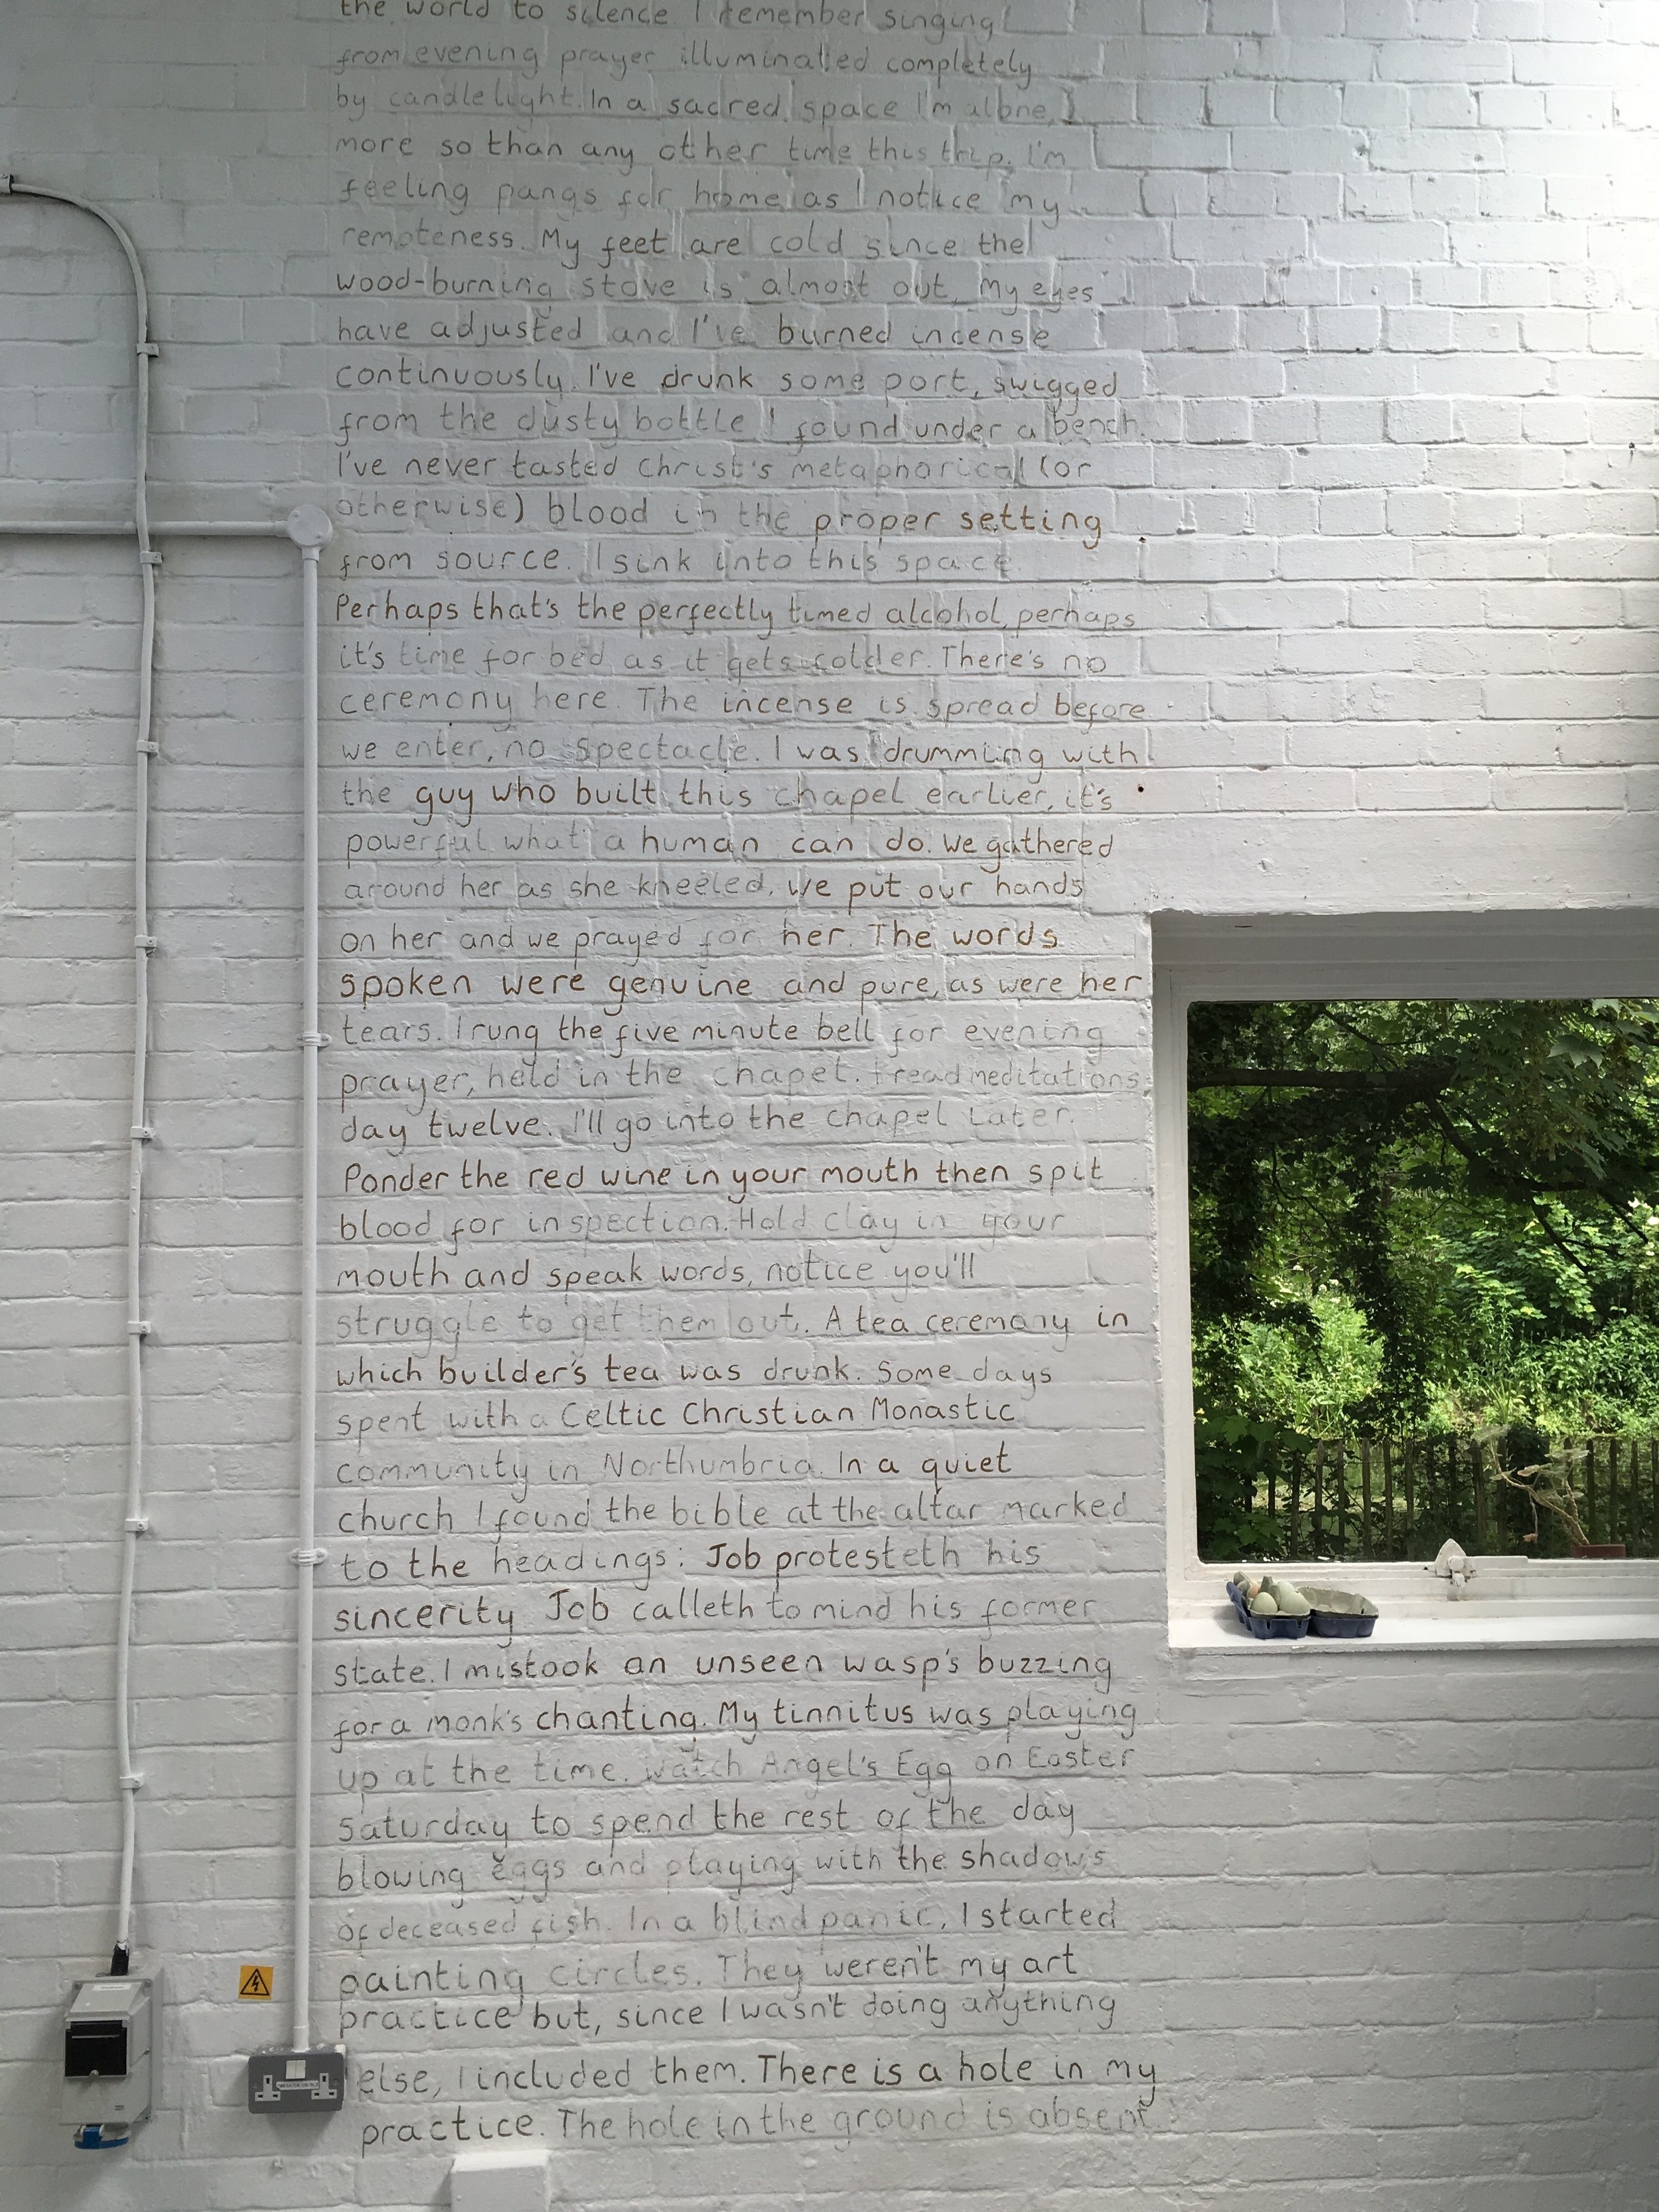 the world to silence. I remember singing
from evening prayer illuminated completely
by candlelight. In a sacred space I'm alone,
more so than any other time this trip. I'm
feeling pangs for home as I notice my
remoteness. My feet are cold since the
wood-burning stove is almost out, my eyes
have adjusted and I've burned incense
continuously. I've drunk some port, swigged
from the dusty bottle I found under a bench.
I've never tasted Christ's metaphorical (or
otherwise) blood in the proper setting
from source. I sink into this space.
Perhaps that's the perfectly timed alcohol, perhaps
it's time for bed as it gets colder. There's no
ceremony here. The incense is spread before
we enter, no spectacle. I was drumming with
the guy who built this chapel earlier, it's
powerful what a human can do. We gathered
around her as she kneeled, we put our hands
on her and we prayed for her. The words
spoken were genuine and pure, as were her
tears. I rung the five minute bell for evening
prayer, held in the chapel. I read meditations
day twelve. I'll go into the chapel later.
Ponder the red wine in your mouth then spit
blood for inspection. Hold clay in your
mouth and speak words, notice you'll
struggle to get them out. A tea ceremony in
which builder's tea was drunk. Some days
spent with a Celtic Christian Monastic
community in Northumbria. In a quiet
church I found the bible at the altar marked
to the headings: Job protesteth his
sincerity Job calleth to mind his former
state. I mistook an unseen wasp's buzzing
for a monk's chanting. My tinnitus was playing
up at the time. Watch Angel's Egg on Easter
Saturday to spend the rest of the day
blowing eggs and playing with the shadows
of deceased fish. In a blind panic, I started
painting circles. They weren't my art
practice but, since I wasn't doing anything
else, I included them. There is a hole in my
practice. The hole in the ground is absent.